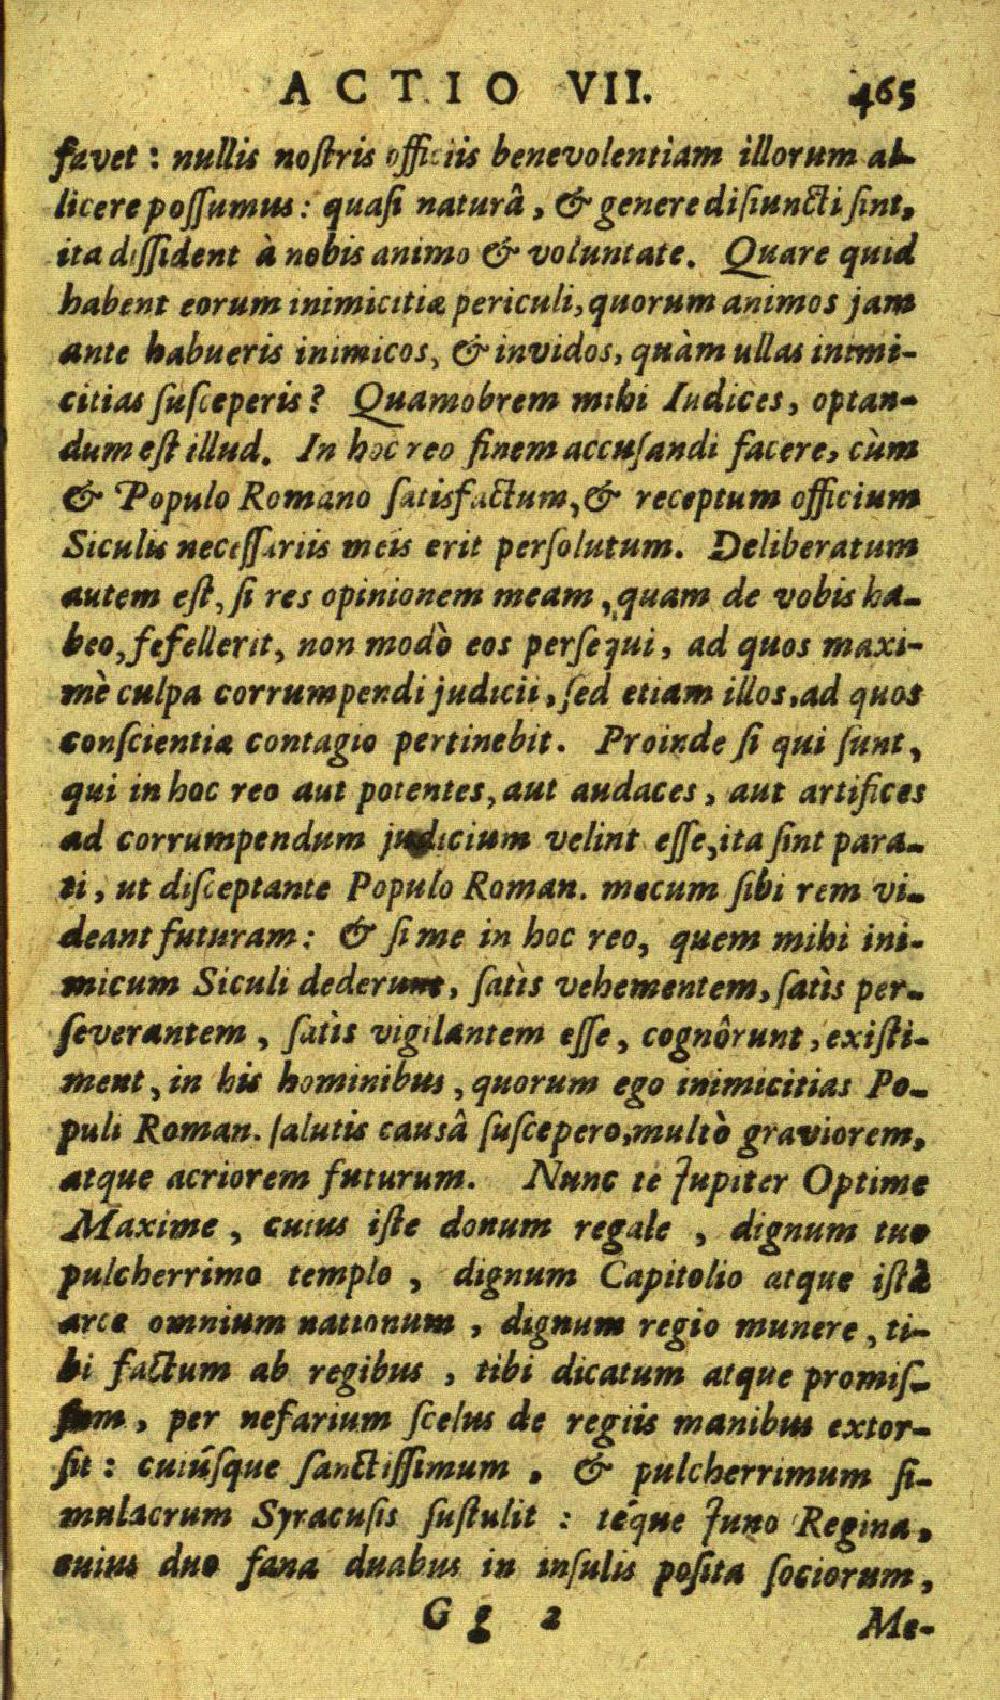 ACTIO VII. 465
favet : nullis noſtris officiis benevolentiam illorum al-
licere poſſumus : quaſi naturâ, & genere diſiuncti ſint,
ita diſſident à nobis animo & voluntate. Quare quid
habent eorum inimicitiæ periculi, quorum animos jam
ante habueris inimicos, & invidos, quàm ullas inimi-
citias ſuſceperis? Quamobrem mihi Iudices, optan-
dum eſt illud. In hoc reo finem accuſandi facere, cùm
& Populo Romano ſatisfactum, & receptum officium
Siculis neceſſariis meis erit perſolutum. Deliberatum
autem eſt, ſi res opinionem meam, quam de vobis ha-
beo, fefellerit, non modò eos perſequi, ad quos maxi-
mè culpa corrumpendi judicii, ſed etiam illos, ad quos
conſcientiæ contagio pertinebit. Proinde ſi qui ſunt,
qui in hoc reo aut potentes, aut audaces, aut artifices
ad corrumpendum judicium velint eſſe, ita ſint para-
ti, ut diſceptante Populo Roman. mecum ſibi rem vi-
deant futuram : & ſi me in hoc reo, quem mihi ini-
micum Siculi dederunt, ſatìs vehementem, ſatìs per-
ſeverantem, ſatìs vigilantem eſſe, cognôrunt, exiſti-
ment, in his hominibus, quorum ego inimicitias Po-
puli Roman. ſalutis causâ ſuſcepero, multò graviorem,
atque acriorem futurum. Nunc te Jupiter Optime
Maxime, cuius iſte donum regale, dignum tuo
pulcherrimo templo, dignum Capitolio atque iſtâ
arce omnium nationum, dignum regio munere, ti-
bi factum ab regibus, tibi dicatum atque promiſ-
ſum, per nefarium ſcelus de regiis manibus extor-
ſit : cuiúſque ſanctiſſimum, & pulcherrimum ſi-
mulacrum Syracuſis ſuſtulit : téque Juno Regina,
cuius duo fana duabus in inſulis poſita ſociorum,
Gg 2 Me-